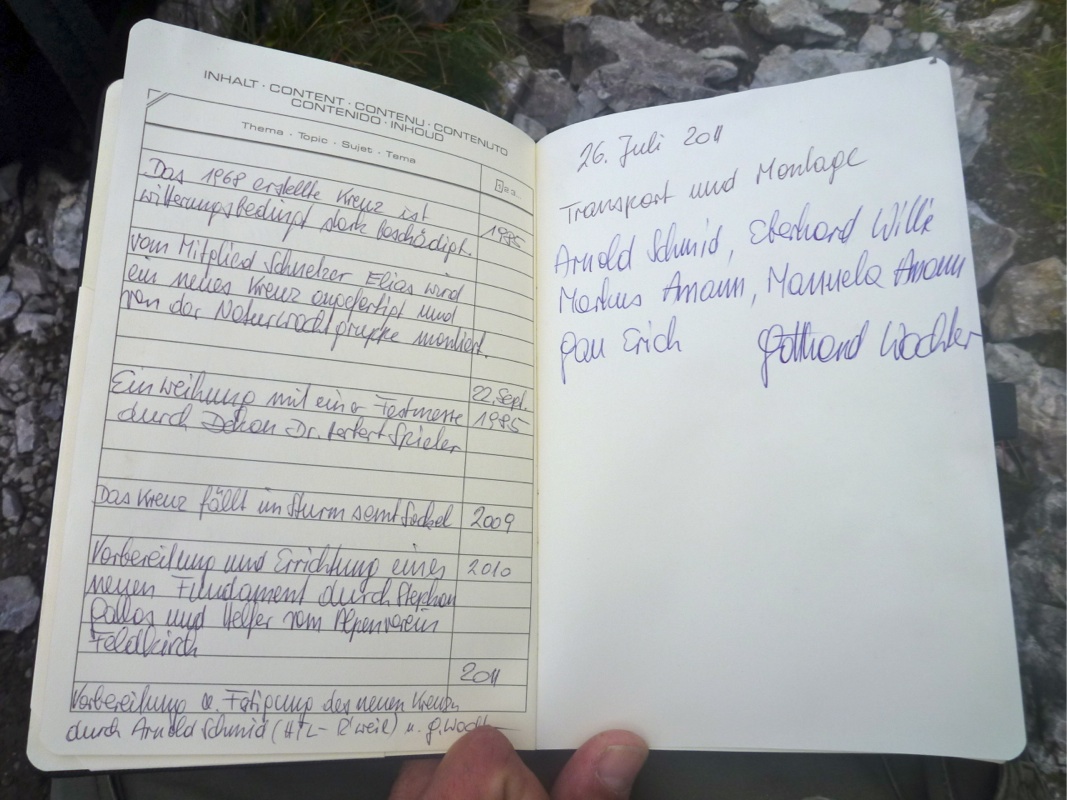 INHALT · CONTENT · CONTENU · CONTENUTO
CONTENIDO · INHOUD
Thema · Topic · Sujet · Tema
Das 1968 erstellte Kreuz ist
witterungsbedingt stark beschädigt. 1985
vom Mitglied Schnetzer Elias wird
ein neues Kreuz angefertigt und
von der Naturwachtgruppe montiert.
22. Sept.
Einweihung mit einer Festmesse 1985
durch Dekan Dr. Herbert Spieler
Das Kreuz fällt im Sturm samt Sockel 2009
Vorbereitung und Errichtung eines 2010
neuen Fundament durch Stephan
Gallos und Helfer vom Alpenverein
Feldkirch
2011
Vorbereitung u. Fertigung des neuen Kreuzes
durch Arnold Schmid (HTL - R'weil) u. G. Wacht
26. Juli 2011
Transport und Montage
Arnold Schmid, Eberhard Willi
Markus Amann, Manuela Amann
Gau Erich Gotthard Wachter